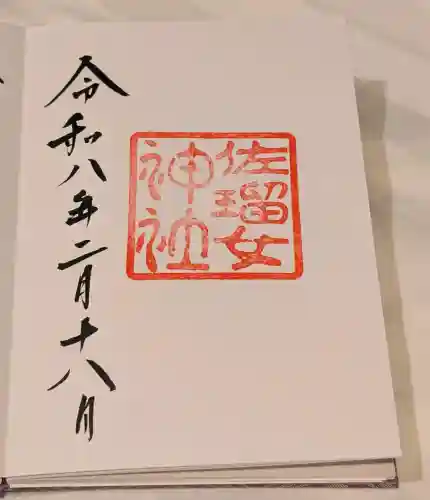 佐瑠女
神社
令和八年二月十八月